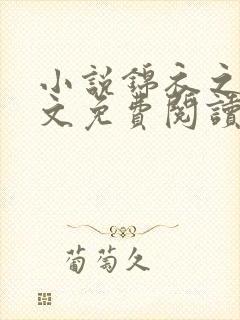 小說錦衣之
文免費閱讀
葡萄久